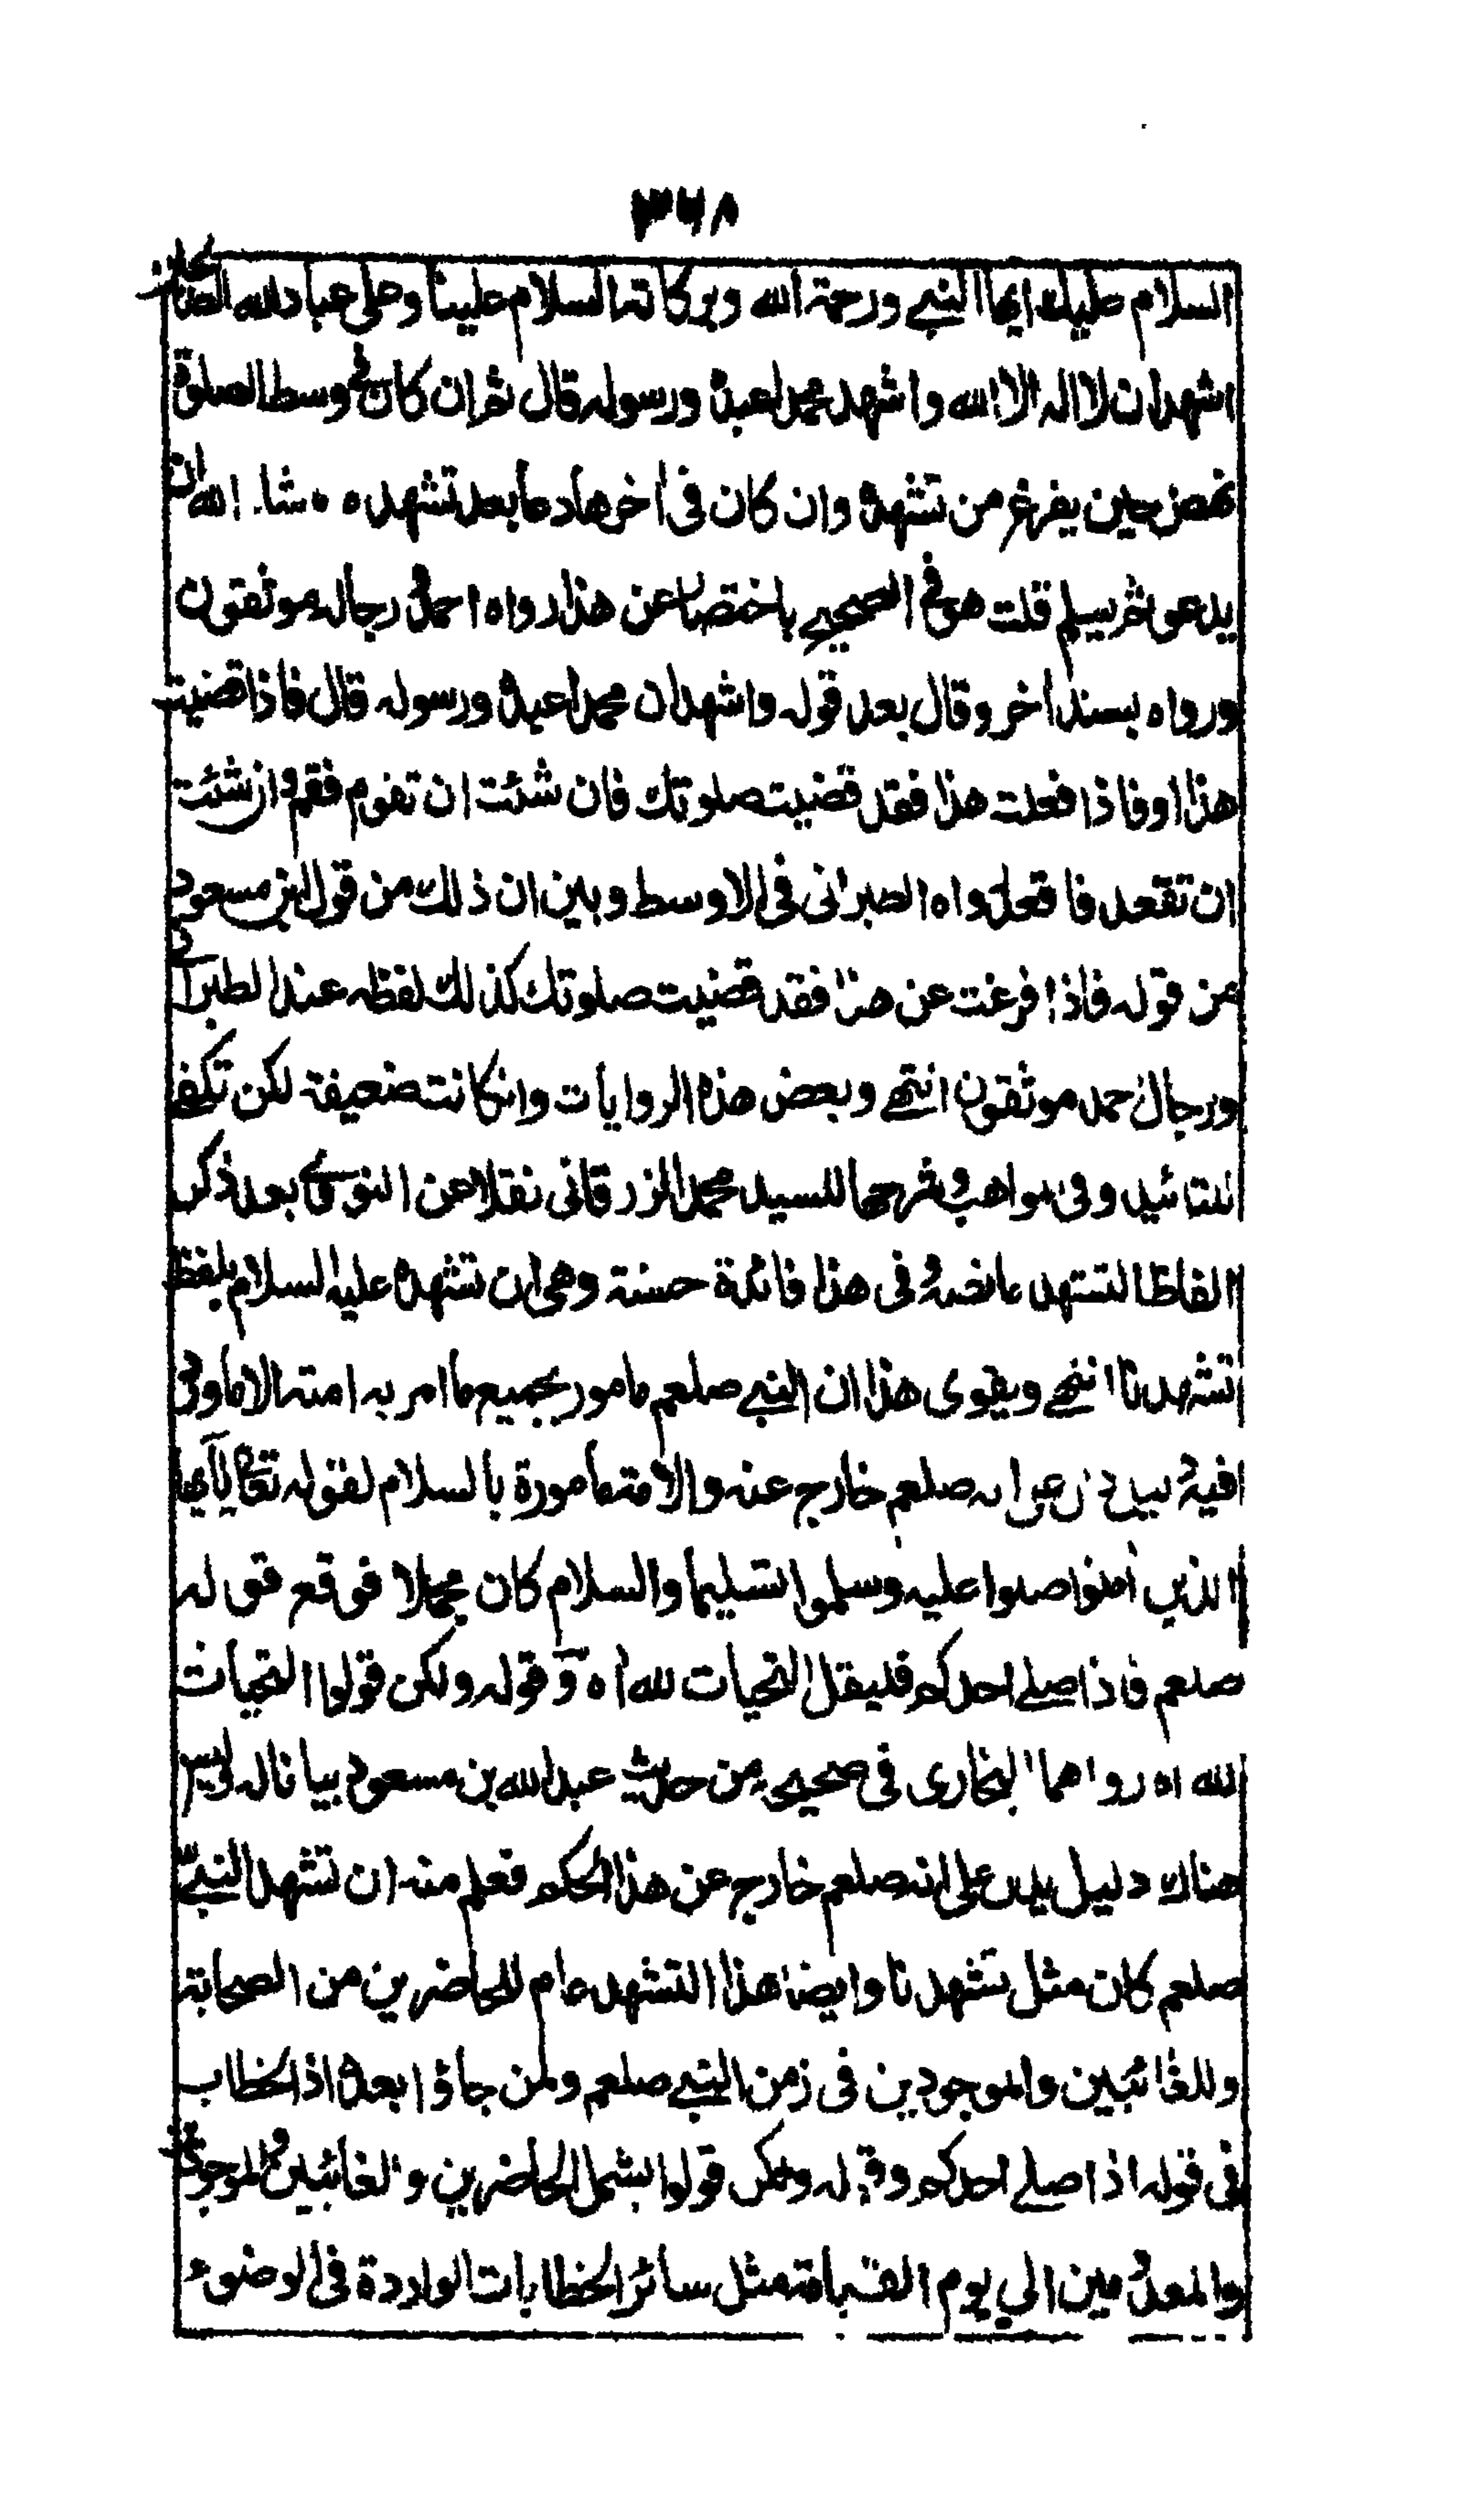 ٣٦٨
السلام عليك ايها النبي ورحمة الله وبركاته السلام علينا وعلى عباد الله الصالحين
اشهد ان لا اله الا الله واشهد محمدا عبده ورسوله قال ثم ان كان في وسط الصلوة
نهض حين يفرغ من تشهده وان كان في اخرها دعا بعد تشهده ما شاء الله ان
يدعو ثم يسلم قلت هو في الصحيح باختصار عن هذا رواه احمد رجاله موثقون
ورواه بسند اخر وقال بعد قوله واشهد ان محمدا عبده ورسوله قال فاذا قضيت
هذا او فاذا فعلت هذا فقد قضيت صلوتك فان شئت ان تقوم فقم وان شئت
ان تقعد فاقعد رواه الطبراني في الاوسط وبين ان ذلك من قول ابن مسعود
من قوله فاذا فرغت عن هذا فقد قضيت صلوتك كذلك لفظه عند الطبراني
ورجال احمد موثقون انتهى وبعض هذه الروايات وان كانت ضعيفة لكن تكفي
للتائيد وفي مواهب وشرحها للسيد محمد الزرقاني نقلا عن النووي بعد ذكر
الفاظ التشهد ما نصه في هذا فائدة حسنة وهي ان تشهده عليه السلام بلفظ
تشهدنا انتهى ويقوى هذا ان النبي صلعم مامور بجميع ما امر به امته الا ما وقع
فيه صلعم خارج عنه والامة مامورة بالسلام لقوله تعالى يا ايها
الذين امنوا صلوا عليه وسلموا تسليما والسلام كان مجملا فوقع قوله
صلعم فاذا صلى احدكم فليقل التحيات لله اه وقوله ولكن قولوا التحيات
لله اه رواهما البخاري في صحيحه من حديث عبد الله بن مسعود بيانا له وليس
هناك دليل يدل على انه صلعم خارج عن هذا الحكم فعلم منه ان تشهد النبي
صلعم كان مثل تشهدنا وايضا هذا التشهد عام للحاضرين من الصحابة
وللغائبين والموجودين في زمن النبي صلعم ولمن جاؤا بعده اذ الخطاب
في قوله اذا صلى احدكم وقوله ولكن قولوا يشمل الحاضرين والغائبين والموجودين
والمعدومين الي يوم القيامة مثل سائر الخطابات الواردة في الوضوء